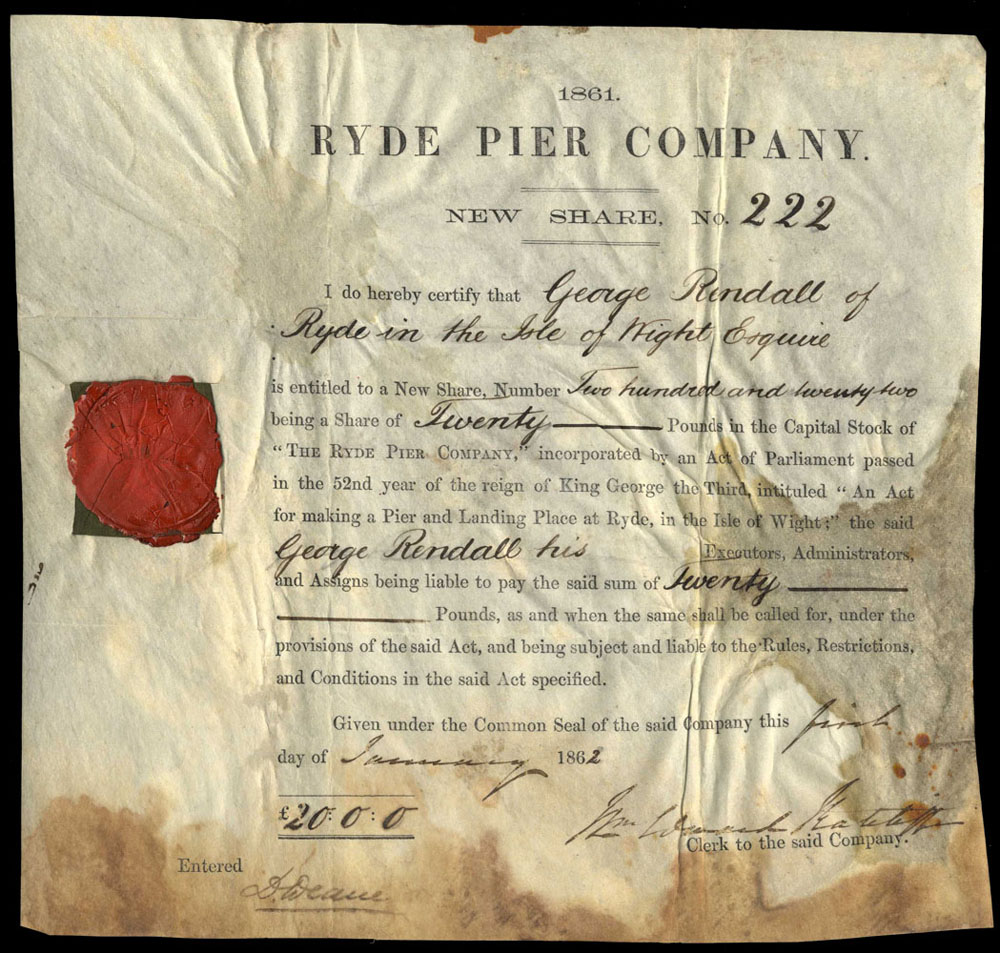 1861.
RYDE PIER COMPANY.
NEW SHARE, No. 222
I do hereby certify that George Rendall of
Ryde in the Isle of Wight Esquire
is entitled to a New Share, Number Two hundred and twenty-two
being a Share of Twenty Pounds in the Capital Stock of
"THE RYDE PIER COMPANY," incorporated by an Act of Parliament passed
in the 52nd year of the reign of King George the Third, intituled "An Act
for making a Pier and Landing Place at Ryde, in the Isle of Wight;" the said
George Rendall his Executors, Administrators,
and Assigns being liable to pay the said sum of Twenty
Pounds, as and when the same shall be called for, under the
provisions of the said Act, and being subject and liable to the Rules, Restrictions,
and Conditions in the said Act specified.
Given under the Common Seal of the said Company this first
day of January 1862
£20:0:0
Wm Edward Ratcliffe
Clerk to the said Company.
Entered
D. Deane